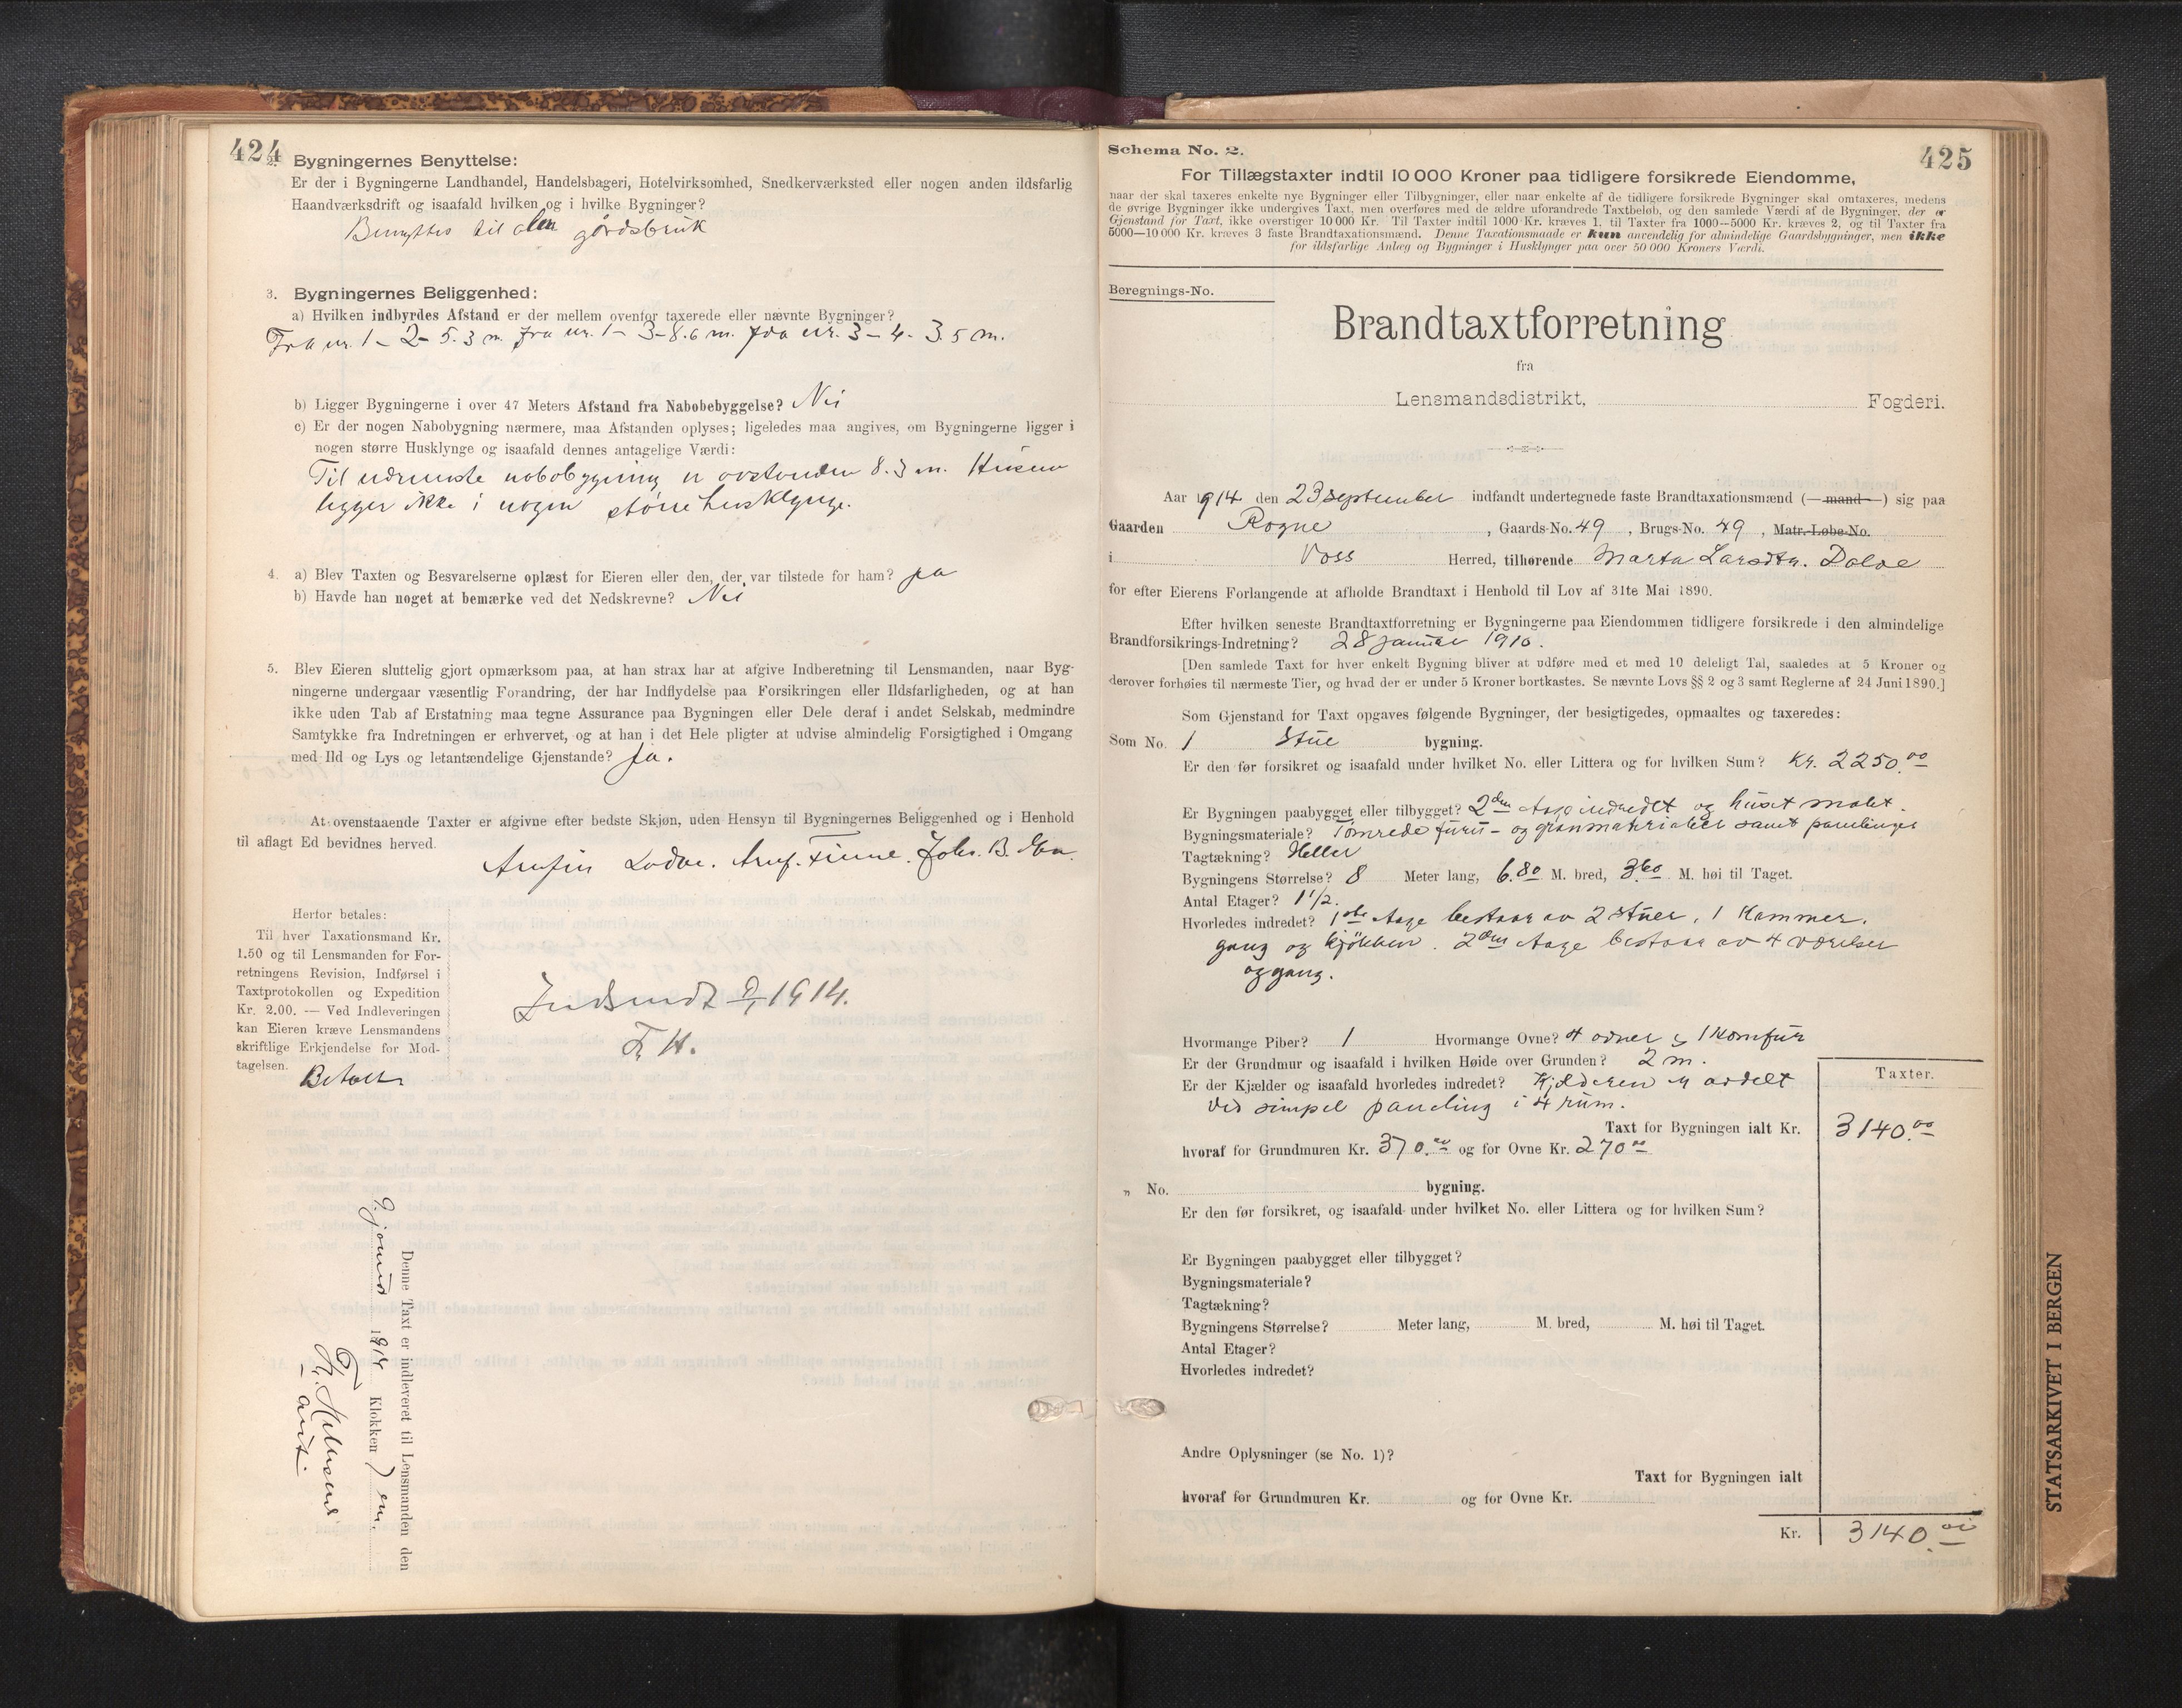 424
2. Bygningernes Benyttelse:
Er der i Bygningerne Landhandel, Handelsbageri, Hotelvirksomhed, Snedkerværksted eller nogen anden ildsfarlig
Haandværksdrift og isaafald hvilken og i hvilke Bygninger?
Benyttes til alm gårdsbruk
3. Bygningernes Beliggenhed:
a) Hvilken indbyrdes Afstand er der mellem ovenfor taxerede eller nævnte Bygninger?
Fra nr. 1 – 2 – 5.3 m. fra nr. 1 – 3 – 8.6 m. fra nr. 3 – 4 – 3.5 m.
b) Ligger Bygningerne i over 47 Meters Afstand fra Nabobebyggelse? Nei
c) Er der nogen Nabobygning nærmere, maa Afstanden oplyses; ligeledes maa angives, om Bygningerne ligger i
nogen større Husklynge og isaafald dennes antagelige Værdi:
Til nærmeste nabobygning er avstanden 8.3 m. Husene
ligger ikke i nogen større husklynge.
4. a) Blev Taxten og Besvarelserne oplæst for Eieren eller den, der var tilstede for ham? Ja
b) Havde han noget at bemærke ved det Nedskrevne? Nei
5. Blev Eieren sluttelig gjort opmærksom paa, at han strax har at afgive Indberetning til Lensmanden, naar Byg-
ningerne undergaar væsentlig Forandring, der har Indflydelse paa Forsikringen eller Ildsfarligheden, og at han
ikke uden Tab af Erstatning maa tegne Assurance paa Bygningen eller Dele deraf i andet Selskab, medmindre
Samtykke fra Indretningen er erhvervet, og at han i det Hele pligter at udvise almindelig Forsigtighed i Omgang
med Ild og Lys og letantændelige Gjenstande? Ja.
At ovenstaaende Taxter er afgivne efter bedste Skjøn, uden Hensyn til Bygningernes Beliggenhed og i Henhold
til aflagt Ed bevidnes herved.
Arnfin Lodve. Finne. Johs. B.
Herfor betales:
Til hver Taxationsmand Kr.
1.50 og til Lensmanden for For-
retningens Revision, Indførsel i
Taxtprotokollen og Expedition
Kr. 2.00. — Ved Indleveringen
kan Eieren kræve Lensmandens
skriftlige Erkjendelse for Mod-
tagelsen.
Betalt
Indsendt 9/1 1914.
F. H.
Denne Taxt er indleveret til Lensmanden den
9. januar 1914 Klokken em.
Schema No. 2.
425
For Tillægstaxter indtil 10 000 Kroner paa tidligere forsikrede Eiendomme,
naar der skal taxeres enkelte nye Bygninger eller Tilbygninger, eller naar enkelte af de tidligere forsikrede Bygninger skal omtaxeres, medens
de øvrige Bygninger ikke undergives Taxt, men overføres med de ældre uforandrede Taxtbeløb, og den samlede Værdi af de Bygninger, der er
Gjenstand for Taxt, ikke overstiger 10 000 Kr. Til Taxter indtil 1000 Kr. kræves 1, til Taxter fra 1000—5000 Kr. kræves 2, og til Taxter fra
5000—10 000 Kr. kræves 3 faste Brandtaxationsmænd. Denne Taxationsmaade er kun anvendelig for almindelige Gaardsbygninger, men ikke
for ildsfarlige Anlæg og Bygninger i Husklynger paa over 50 000 Kroners Værdi.
Beregnings-No.
Brandtaxtforretning
fra
Lensmandsdistrikt, Fogderi.
Aar 1914 den 23 september indfandt undertegnede faste Brandtaxationsmænd (—mand—) sig paa
Gaarden Rogne, Gaards-No. 49, Brugs-No. 49, Matr.-Løbe-No.
i Voss Herred, tilhørende Marta Larsdtr. Dolve
for efter Eierens Forlangende at afholde Brandtaxt i Henhold til Lov af 31te Mai 1890.
Efter hvilken seneste Brandtaxtforretning er Bygningerne paa Eiendommen tidligere forsikrede i den almindelige
Brandforsikrings-Indretning? 28 januar 1910.
[Den samlede Taxt for hver enkelt Bygning bliver at udføre med et med 10 deleligt Tal, saaledes at 5 Kroner og
derover forhøies til nærmeste Tier, og hvad der er under 5 Kroner bortkastes. Se nævnte Lovs §§ 2 og 3 samt Reglerne af 24 Juni 1890.]
Som Gjenstand for Taxt opgaves følgende Bygninger, der besigtigedes, opmaaltes og taxeredes:
Som No. 1 Stue bygning.
Er den før forsikret og isaafald under hvilket No. eller Littera og for hvilken Sum? Kr. 2250.00
Er Bygningen paabygget eller tilbygget? 2den etage indredt og huset malt.
Bygningsmateriale? Tømrede furu- og granmaterialer samt panelinger
Tagtækning? Heller
Bygningens Størrelse? 8 Meter lang, 6.80 M. bred, 3.60 M. høi til Taget.
Antal Etager? 1 1/2.
Hvorledes indredet? 1ste etage bestaar av 2 stuer, 1 kammer.
gang og kjøkken. 2den etage bestaar av 4 værelser
og gang.
Hvormange Piber? 1 Hvormange Ovne? 4 ovner og 1 komfur
Er der Grundmur og isaafald i hvilken Høide over Grunden? 2 m.
Er der Kjælder og isaafald hvorledes indredet? Kjelderen er avdelt
ved simpel paneling i 4 rum.
Taxter.
Taxt for Bygningen ialt Kr. 3140.00
hvoraf for Grundmuren Kr. 370.00 og for Ovne Kr. 270.00
„ No. bygning.
Er den før forsikret, og isaafald under hvilket No. eller Littera og for hvilken Sum?
Er Bygningen paabygget eller tilbygget?
Bygningsmateriale?
Tagtækning?
Bygningens Størrelse? Meter lang, M. bred, M. høi til Taget.
Antal Etager?
Hvorledes indredet?
Andre Oplysninger (se No. 1)?
Taxt for Bygningen ialt
hvoraf for Grundmuren Kr. og for Ovne Kr.
Kr. 3140.00
STATSARKIVET I BERGEN